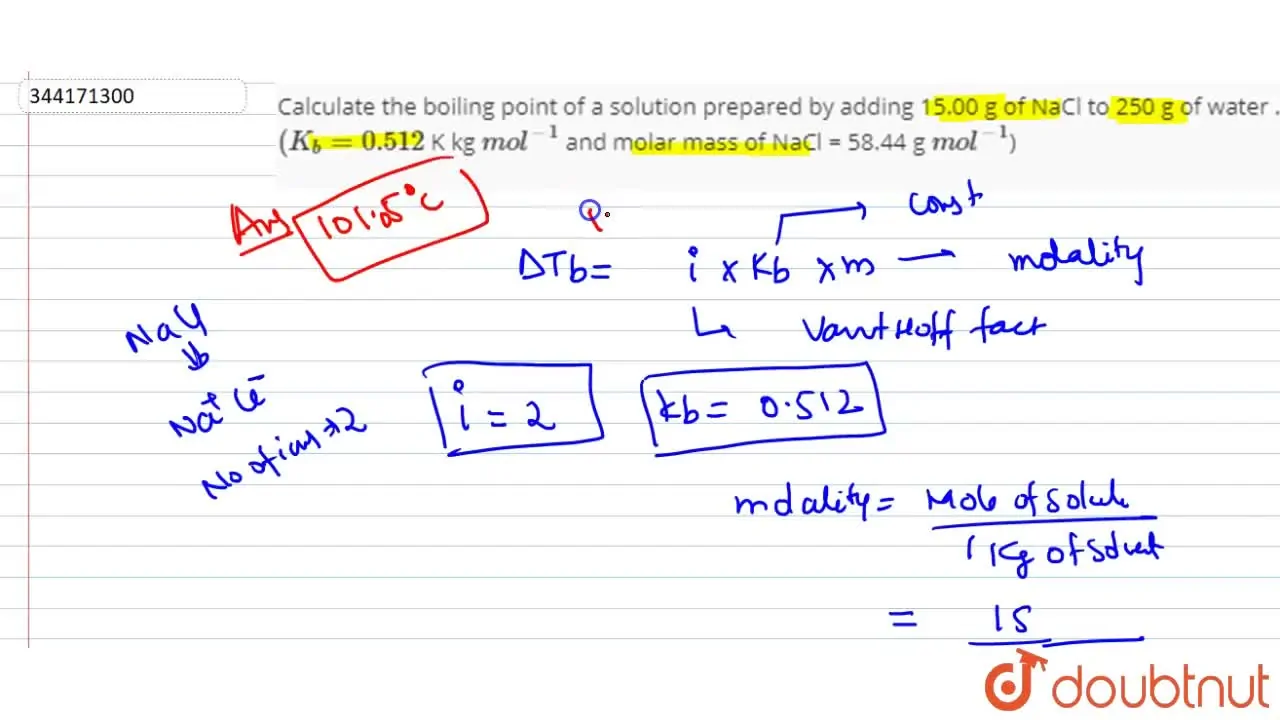 344171300
Calculate the boiling point of a solution prepared by adding 15.00 g of NaCl to 250 g of water .
(K_b = 0.512 K kg mol⁻¹ and molar mass of NaCl = 58.44 g mol⁻¹)
Ans 101.05°C
const
ΔTb = i × Kb × m — molality
Vant Hoff fact
NaCl
Na⁺ Cl⁻
No of ions → 2
i = 2
kb = 0.512
molality = Mole of Solute
1 Kg of Solvent
= 15
doubtnut